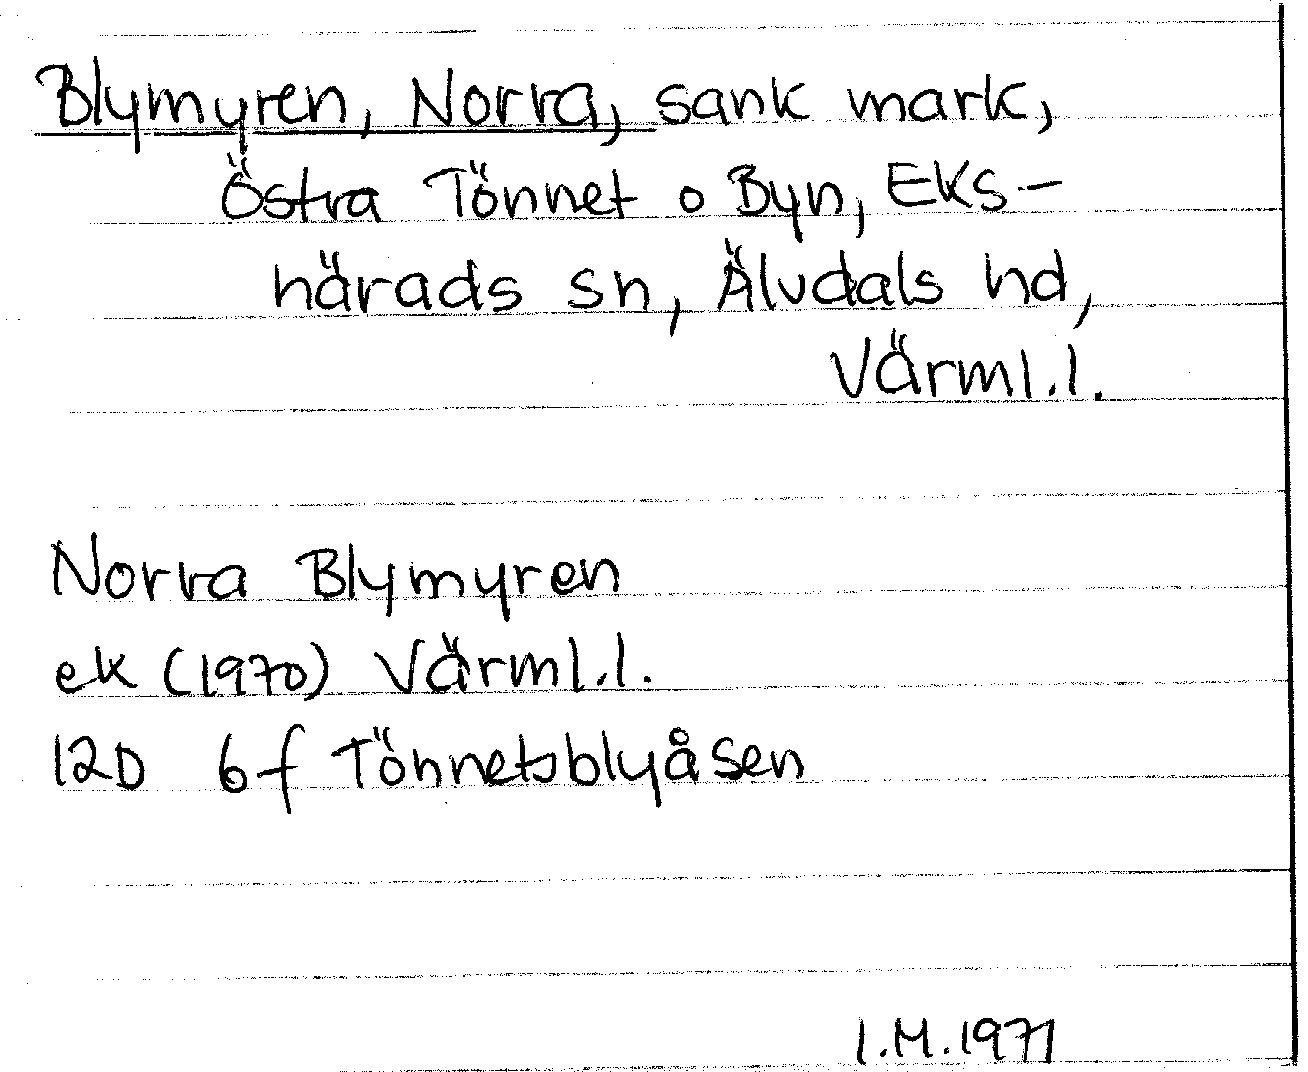 Blymyren, Norra, sank mark,
Östra Tönnet o Byn, Eks-
härads sn, Älvdals hd,
Värml.l.
Norra Blymyren
ek (1970) Värml.l.
12D 6f Tönnetsblyåsen
I.M.1971